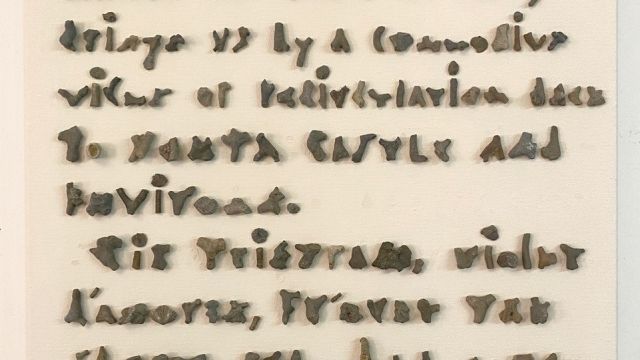 brings us by a Commodius
vicus of recirculation back
to Howth Castle and
Environs.
Sir Tristram, violer
d'amores, fr'over the